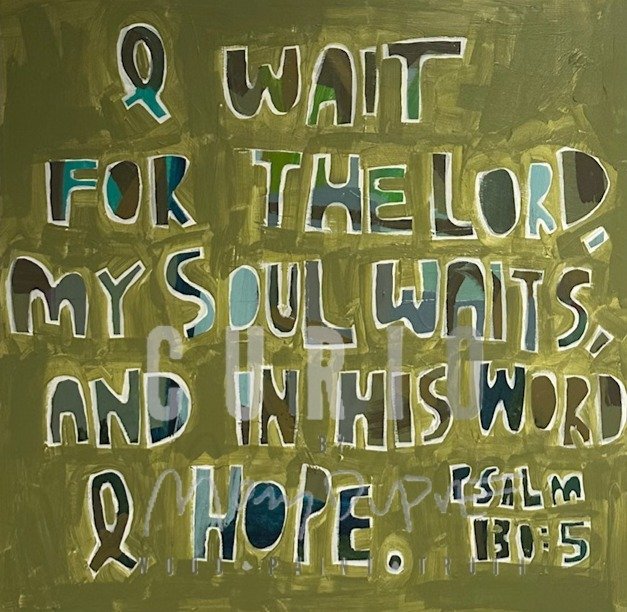 I WAIT
FOR THE LORD,
MY SOUL WAITS,
AND IN HIS WORD
I HOPE. PSALM
130:5
CURIO
BY